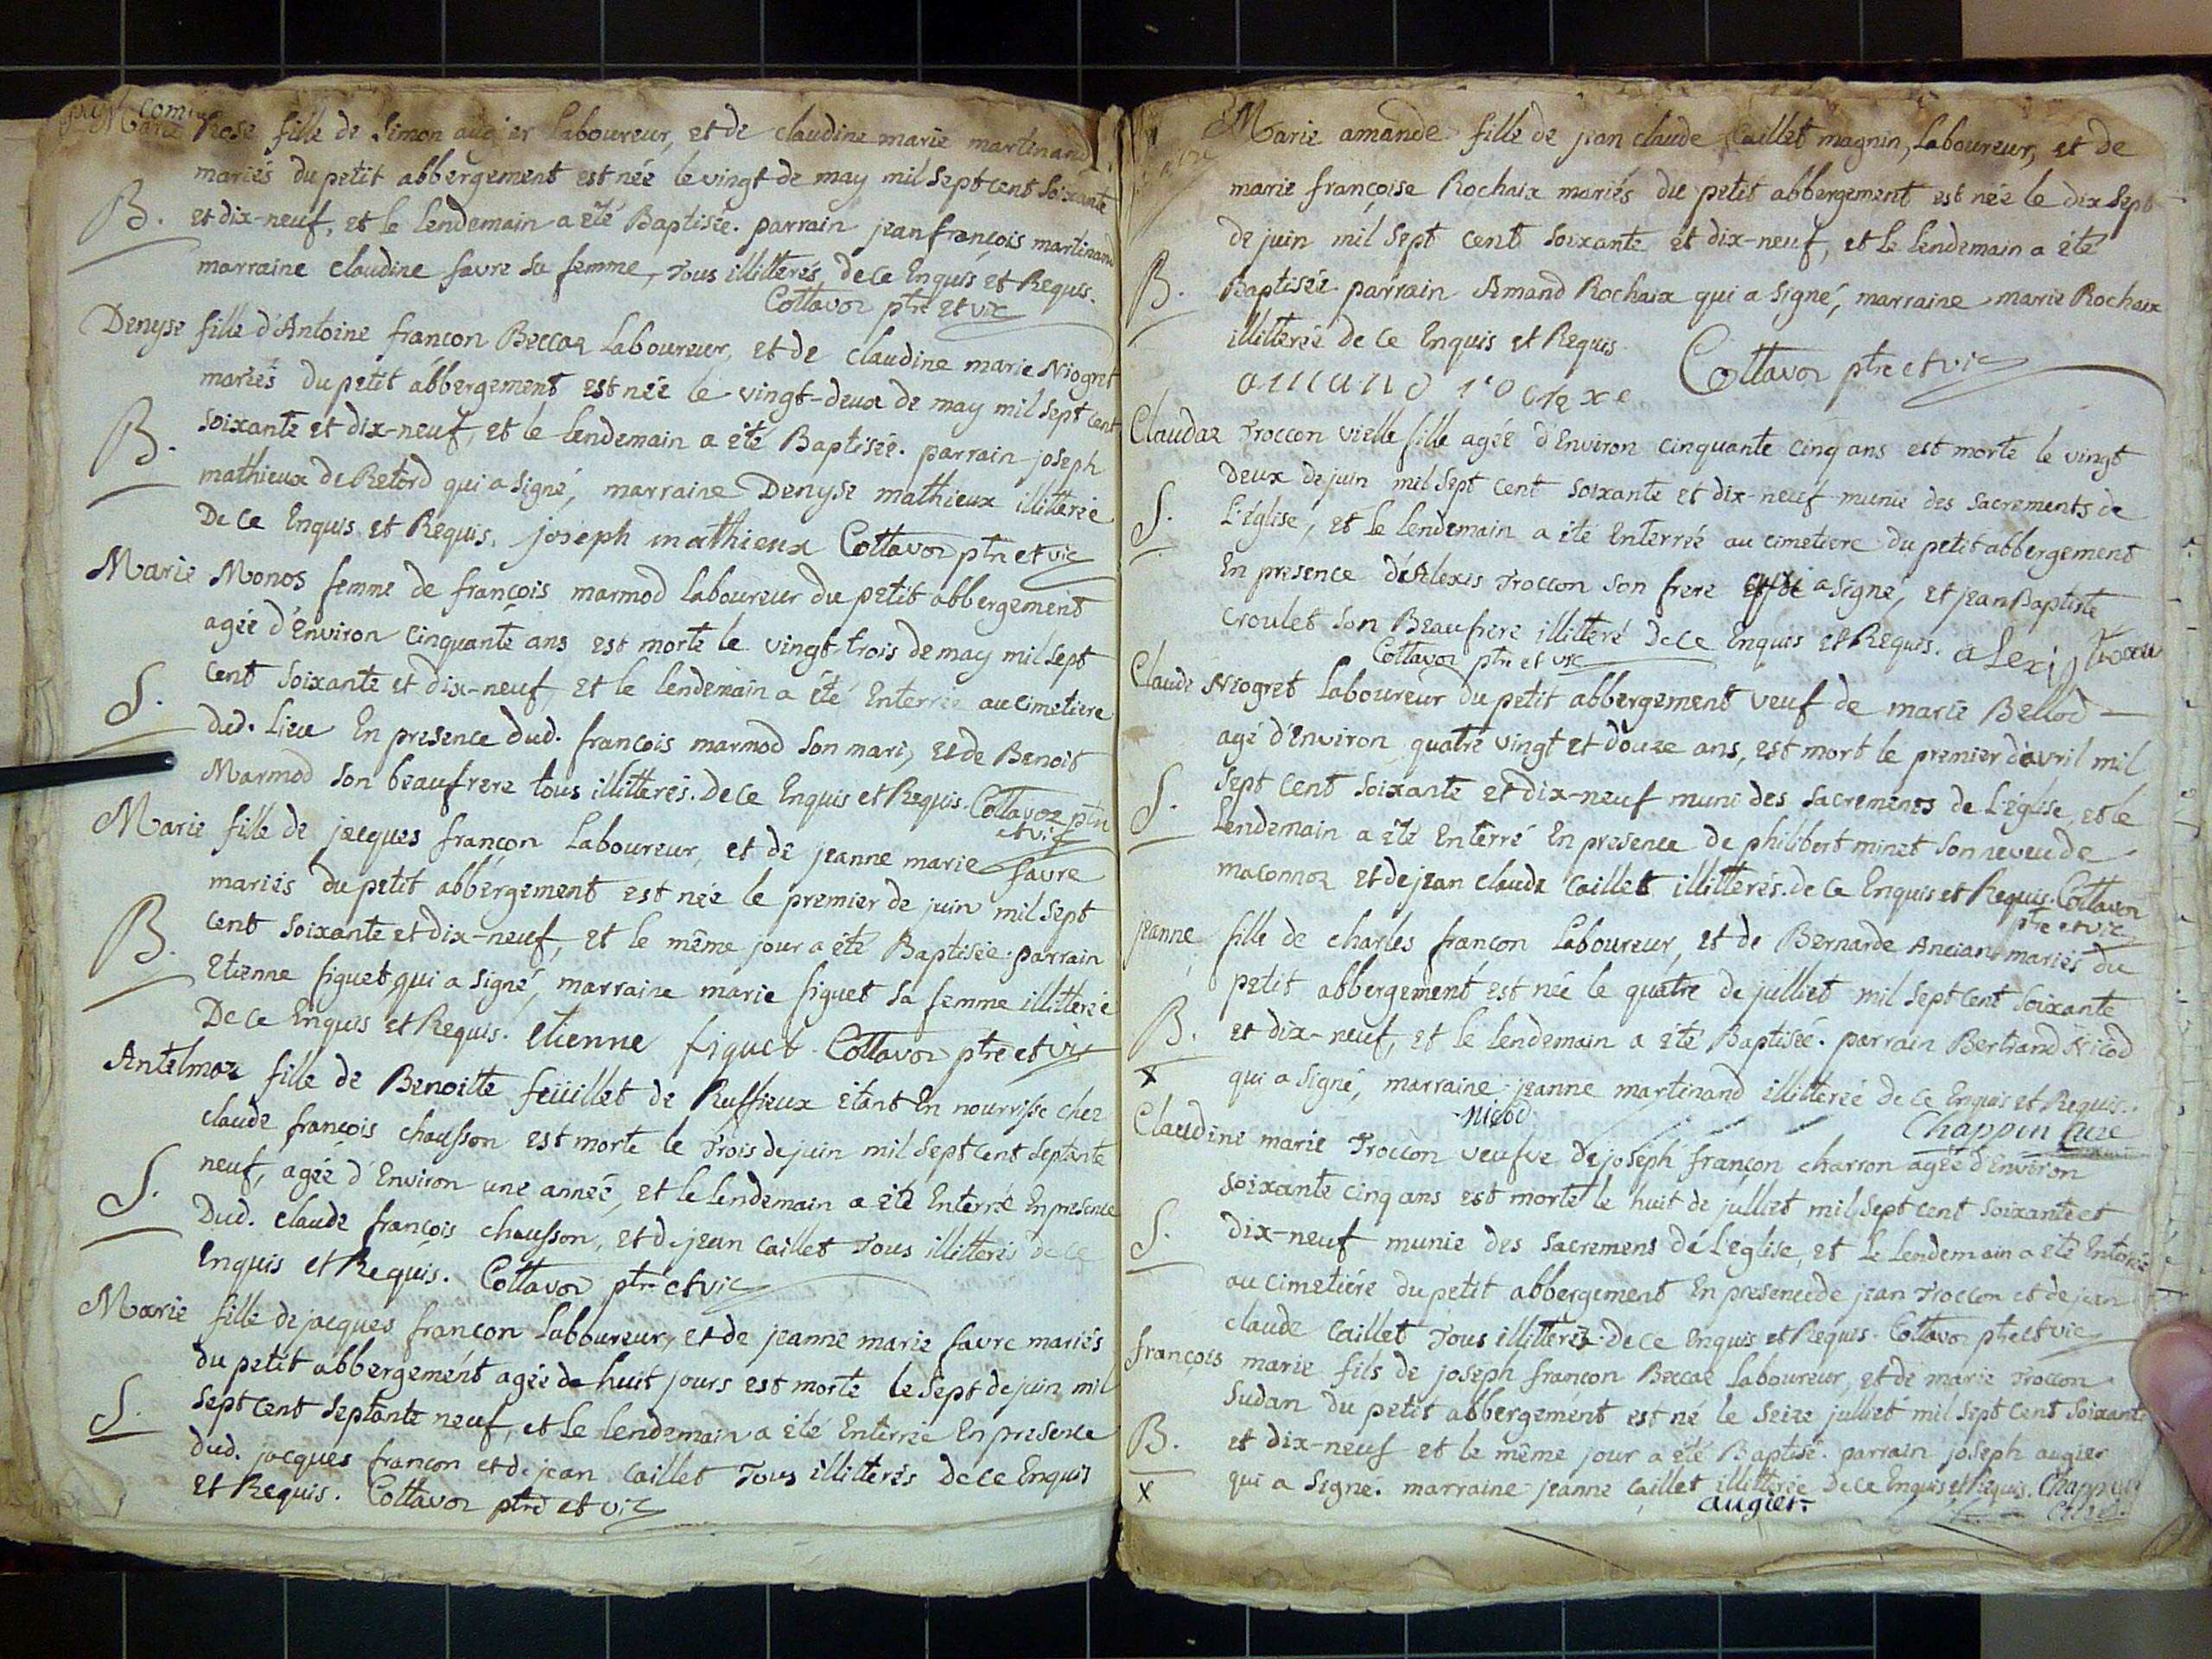 Marie Rose fille de Simon augier Laboureur, et de claudine marie martinand
mariés du petit abbergement est née le vingt de may mil sept cent soixante
B. et dix-neuf, et le lendemain a été Baptisée. parrain jean françois martinand
marraine claudine favre sa femme, Tous illitterés de ce Enquis et Requis.
Cottavoz ptre et vic
Denyse fille d'Antoine françon Beccaz Laboureur, et de claudine marie Niogret
mariés du petit abbergement est née le vingt-deux de may mil sept cent
soixante et dix-neuf, et le lendemain a été Baptisée. parrain joseph
B. mathieux de Retord qui a signé, marraine Denyse mathieux illitterée
De ce Enquis et Requis. joseph mathieux Cottavoz ptre et vic
Marie Monos femme de françois marmod laboureur du petit abbergement
agée d'Environ cinquante ans est morte le vingt-trois de may mil sept
S. cent soixante et dix-neuf, et le lendemain a été Enterrée au cimetiere
dud. Lieu En presence dud. françois marmod son mari, et de Benoit
Marmod son beaufrere tous illitterés. De ce Enquis et Requis. Cottavoz ptre
et vic
Marie fille de jacques françon Laboureur, et de jeanne marie favre
mariés du petit abbergement est née le premier de juin mil sept
B. cent soixante et dix-neuf, et le même jour a été Baptisée. parrain
Etienne figuet qui a signé, marraine marie figuet sa femme illitterée
De ce Enquis et Requis. etienne figuet Cottavoz ptre et vic
Antelmaz fille de Benoitte feüillet de Ruffieux étant En nourrisse chez
claude françois chausson est morte le Trois de juin mil sept cent septante
S. neuf, agée d'Environ une année, et le lendemain a été Enterrée En presence
Dud. claude françois chausson, et de jean caillet Tous illitterés de ce
Enquis et Requis. Cottavoz ptre et vic
Marie fille de jacques françon Laboureur, et de jeanne marie favre mariés
du petit abbergement agée de huit jours est morte le sept de juin mil
S. sept cent septante neuf, et le lendemain a été Enterrée En presence
dud. jacques françon et de jean caillet Tous illitterés De ce Enquis
et Requis. Cottavoz ptre et vic
Marie amande fille de jean claude Caillet magnin, Laboureur, et de
marie françoise Rochaix mariés du petit abbergement est née le dix sept
de juin mil sept cent soixante et dix-neuf, et le lendemain a été
B. Baptisée parrain Amand Rochaix qui a signé, marraine marie Rochaix
illitterée de ce Enquis et Requis. Cottavoz ptre et vic
Claudaz Troccon vielle fille agée d'Environ cinquante cinq ans est morte le vingt
deux de juin mil sept cent soixante et dix-neuf munie des sacrements de
S. L'église, et le lendemain a été Enterrée au cimetiere du petit abbergement
En presence d'Alexis Troccon son frere a signé, et jean Baptiste
croulet son Beaufrere illitteré de ce Enquis et Requis. alexis
Cottavoz ptre et vic
Claude Niogret Laboureur du petit abbergement veuf de marie Bellod
agé d'Environ quatre vingt et douze ans, est mort le premier d'avril mil
S. sept cent soixante et dix-neuf muni des sacrements de L'église, et le
lendemain a été Enterré En presence de philibert minet son neveu de
maconnoz et de jean claude caillet illitterés. de ce Enquis et Requis. Cottavoz
ptre et vic
jeanne fille de charles françon Laboureur, et de Bernarde Ancian mariés du
petit abbergement est née le quatre de julliet mil sept cent soixante
B. et dix-neuf, et le lendemain a été Baptisée. parrain Bertrand Nicod
x qui a signé, marraine jeanne martinand illitterée de ce Enquis et Requis.
Nicod Chappin Curé
Claudine marie Troccon veufve de joseph françon charron agée d'Environ
soixante cinq ans est morte le huit de julliet mil sept cent soixante et
S. dix-neuf munie des sacremens de L'église, et le lendemain a été Enterrée
au cimetiére du petit abbergement En presence de jean Troccon et de jean
claude Caillet Tous illitterés. de ce Enquis et Requis. Cottavoz ptre et vic
françois marie fils de joseph françon Beccaz Laboureur, et de marie Troccon
Sudan du petit abbergement est né le seize julliet mil sept cent soixante
B. et dix-neuf et le même jour a été Baptisé. parrain joseph augier
x qui a signé. marraine jeanne caillet illitterée De ce Enquis et Requis. Chappin
augier. Curé.